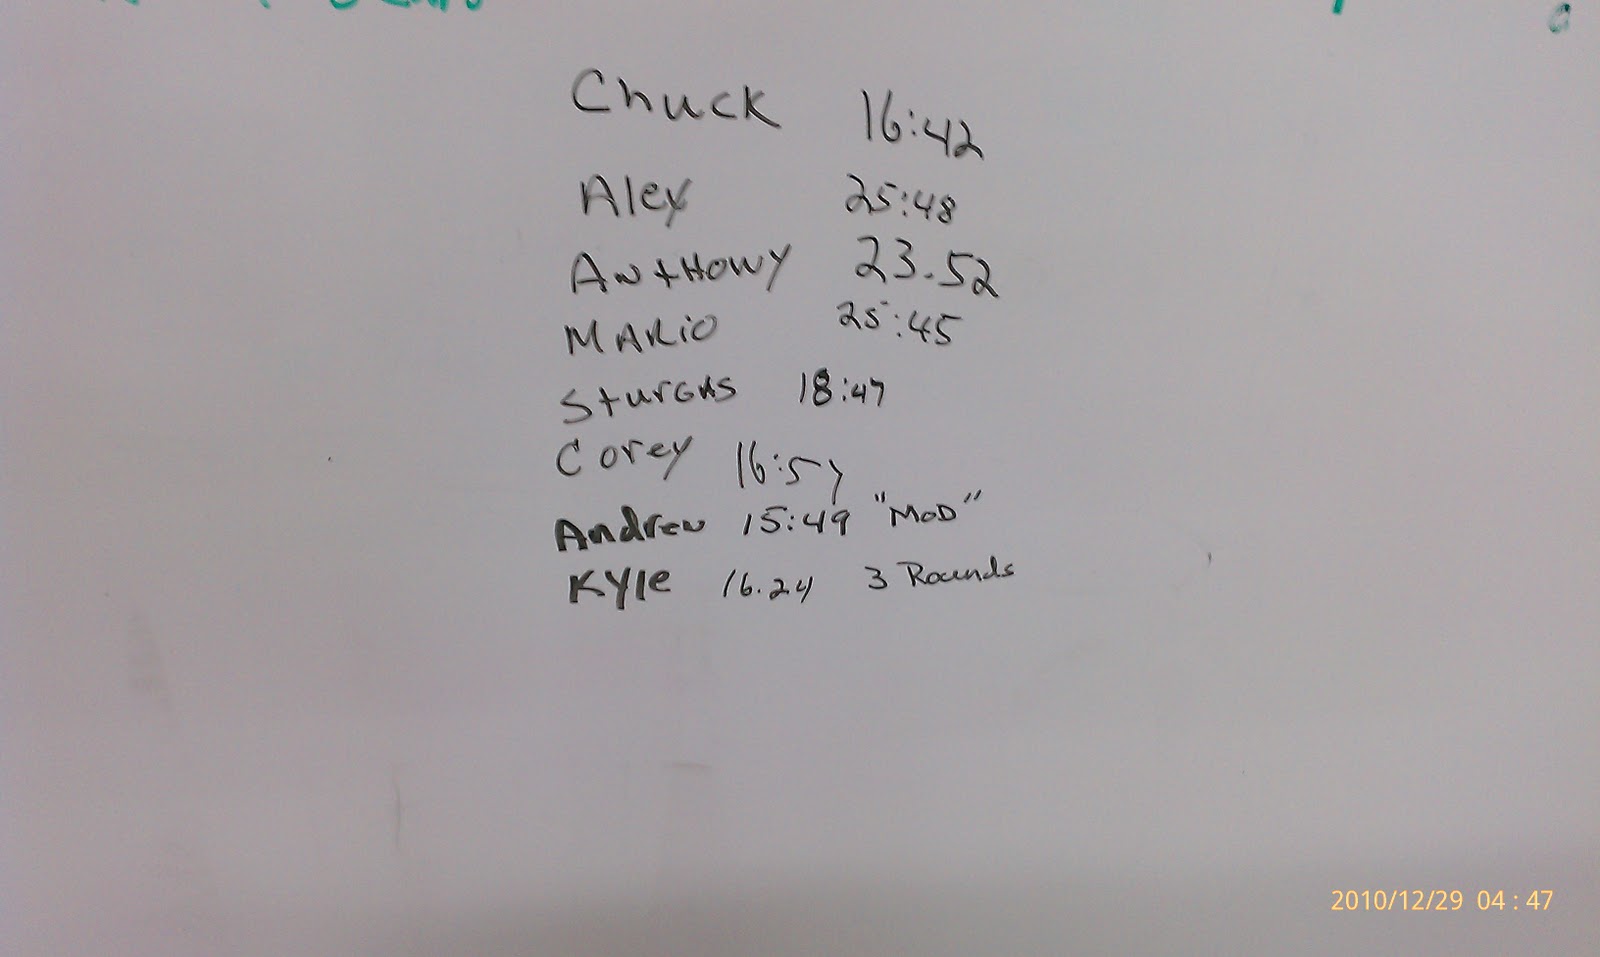 Chuck 16:42
Alex 25:48
Anthony 23.52
Mario 25:45
Sturgis 18:47
Corey 16:57
Andrew 15:49 "MoD"
Kyle 16.24 3 Rounds
2010/12/29 04:47